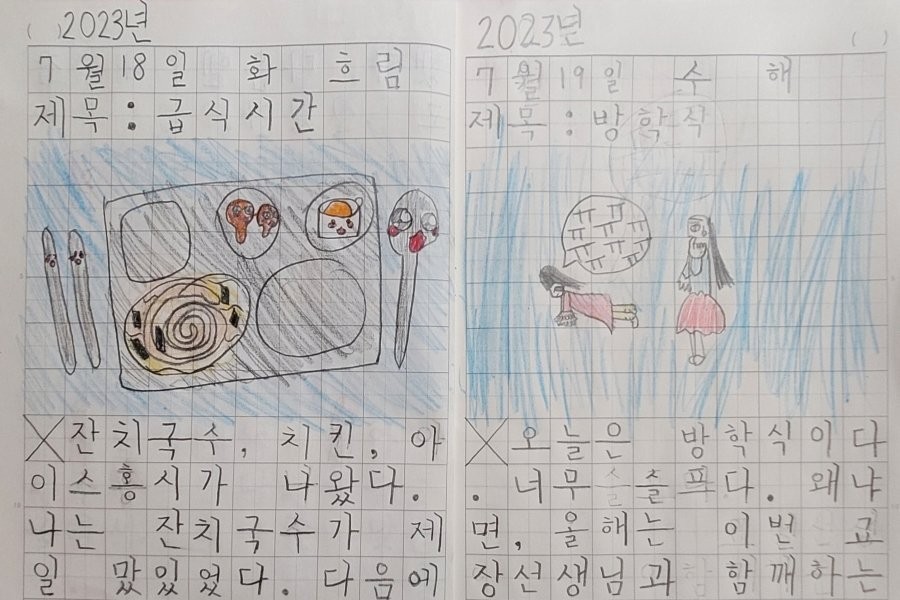 ( ) 2023년
7월 18일 화 흐림
제목: 급식시간
X잔치국수, 치킨, 아
이스홍시가 나왔다.
나는 잔치국수가 제
일 맜있었다. 다음에
2023년 ( )
7월 19일 수 해
제목: 방학식
ㅠㅠ
ㅠㅠㅠ
ㅠㅠㅠ
ㅠㅠ
X오늘은 방학식이다
. 너무 슬프다. 왜냐
면, 올해는 이번 교
장선생님과 함깨하는